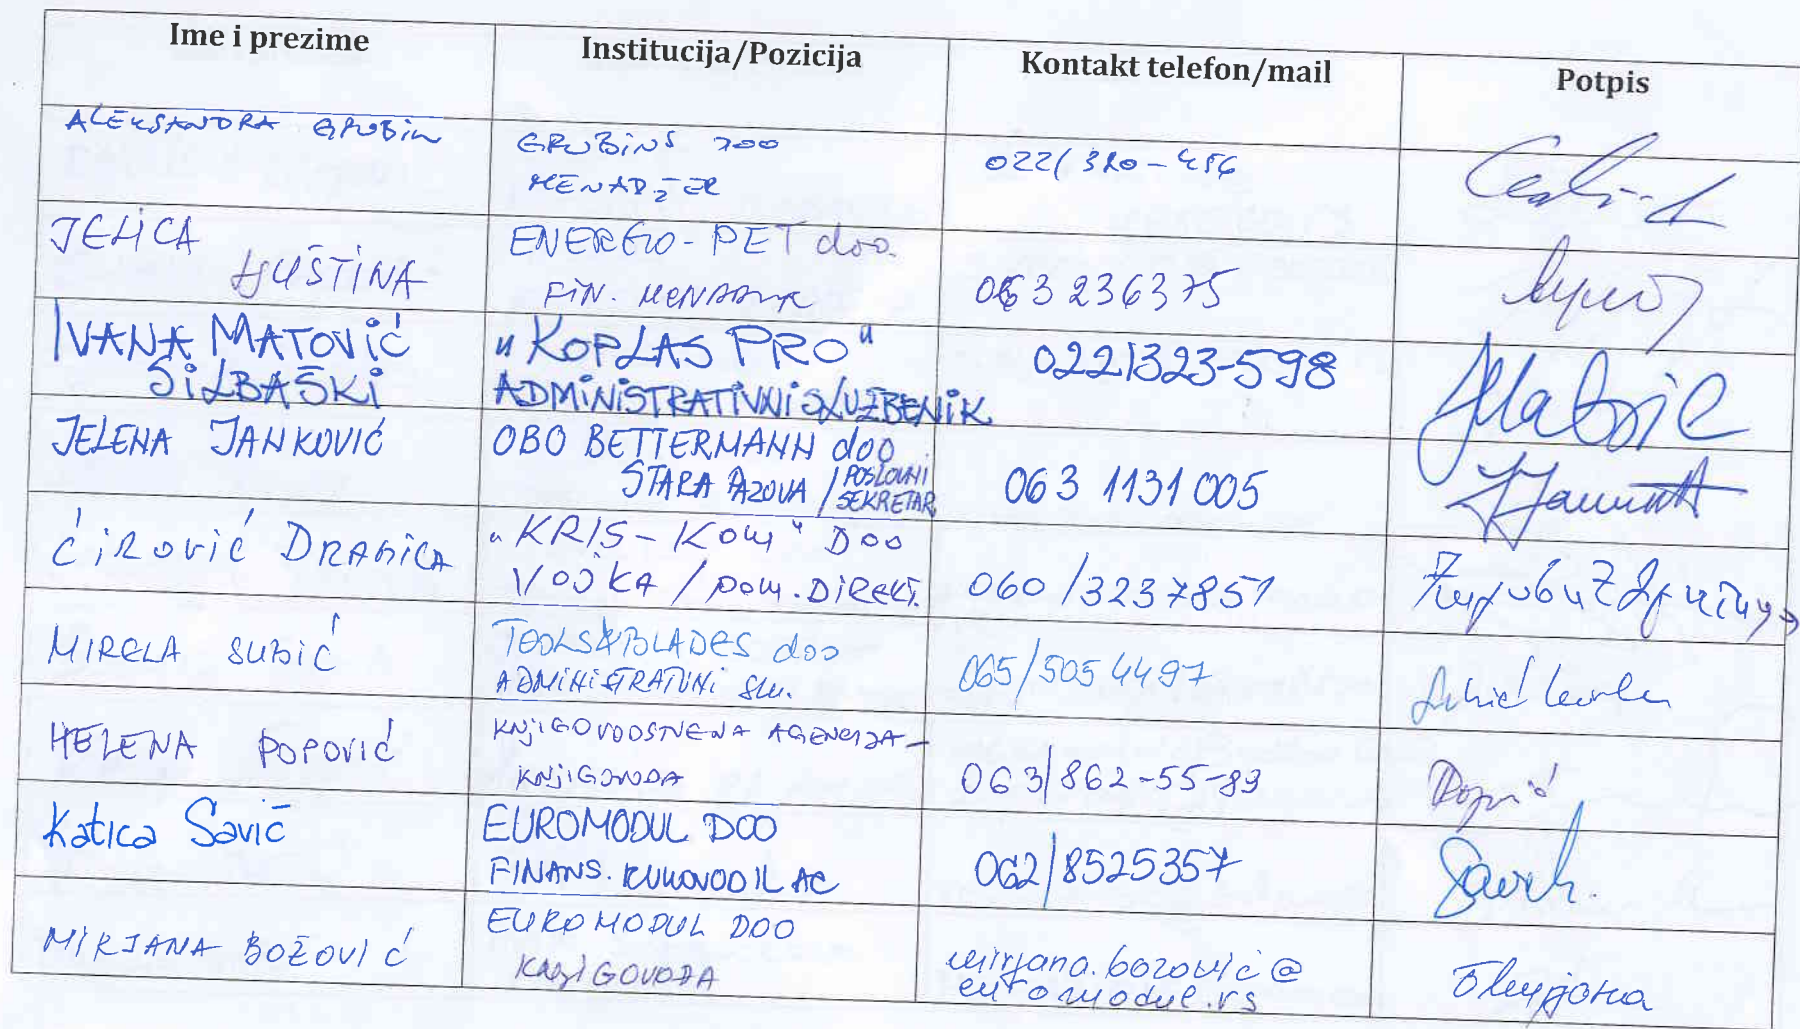 Ime i prezime
Institucija/Pozicija
Kontakt telefon/mail
Potpis
ALEKSANDRA GRUBIN
GRUBINS DOO
MENADŽER
022/320-456
JELICA
LJUŠTINA
ENERGO-PET doo.
FIN. MENADŽER
063 236375
IVANA MATOVIĆ
SILBAŠKI
"KOPLAS PRO"
ADMINISTRATIVNI SLUŽBENIK
022/323-598
JELENA JANKOVIĆ
OBO BETTERMANN doo
STARA PAZOVA / POSLOVNI
SEKRETAR
063 1131 005
ĆIROVIĆ DRAGICA
"KRIS-KOM" DOO
VOJKA / POM. DIREKT.
060/3237851
MIRELA SUBIĆ
TOOLS&BLADES doo
ADMINISTRATIVNI SLU.
065/505 4497
HELENA POPOVIĆ
KNJIGOVODSTVENA AGENCIJA-
KNJIGOVOĐA
063/862-55-89
Popović
Katica Savić
EUROMODUL DOO
FINANS. RUKOVODILAC
062/8525357
MIRJANA BOŽOVIĆ
EUROMODUL DOO
KNJIGOVOĐA
mirjana.bozovic@
euromodul.rs